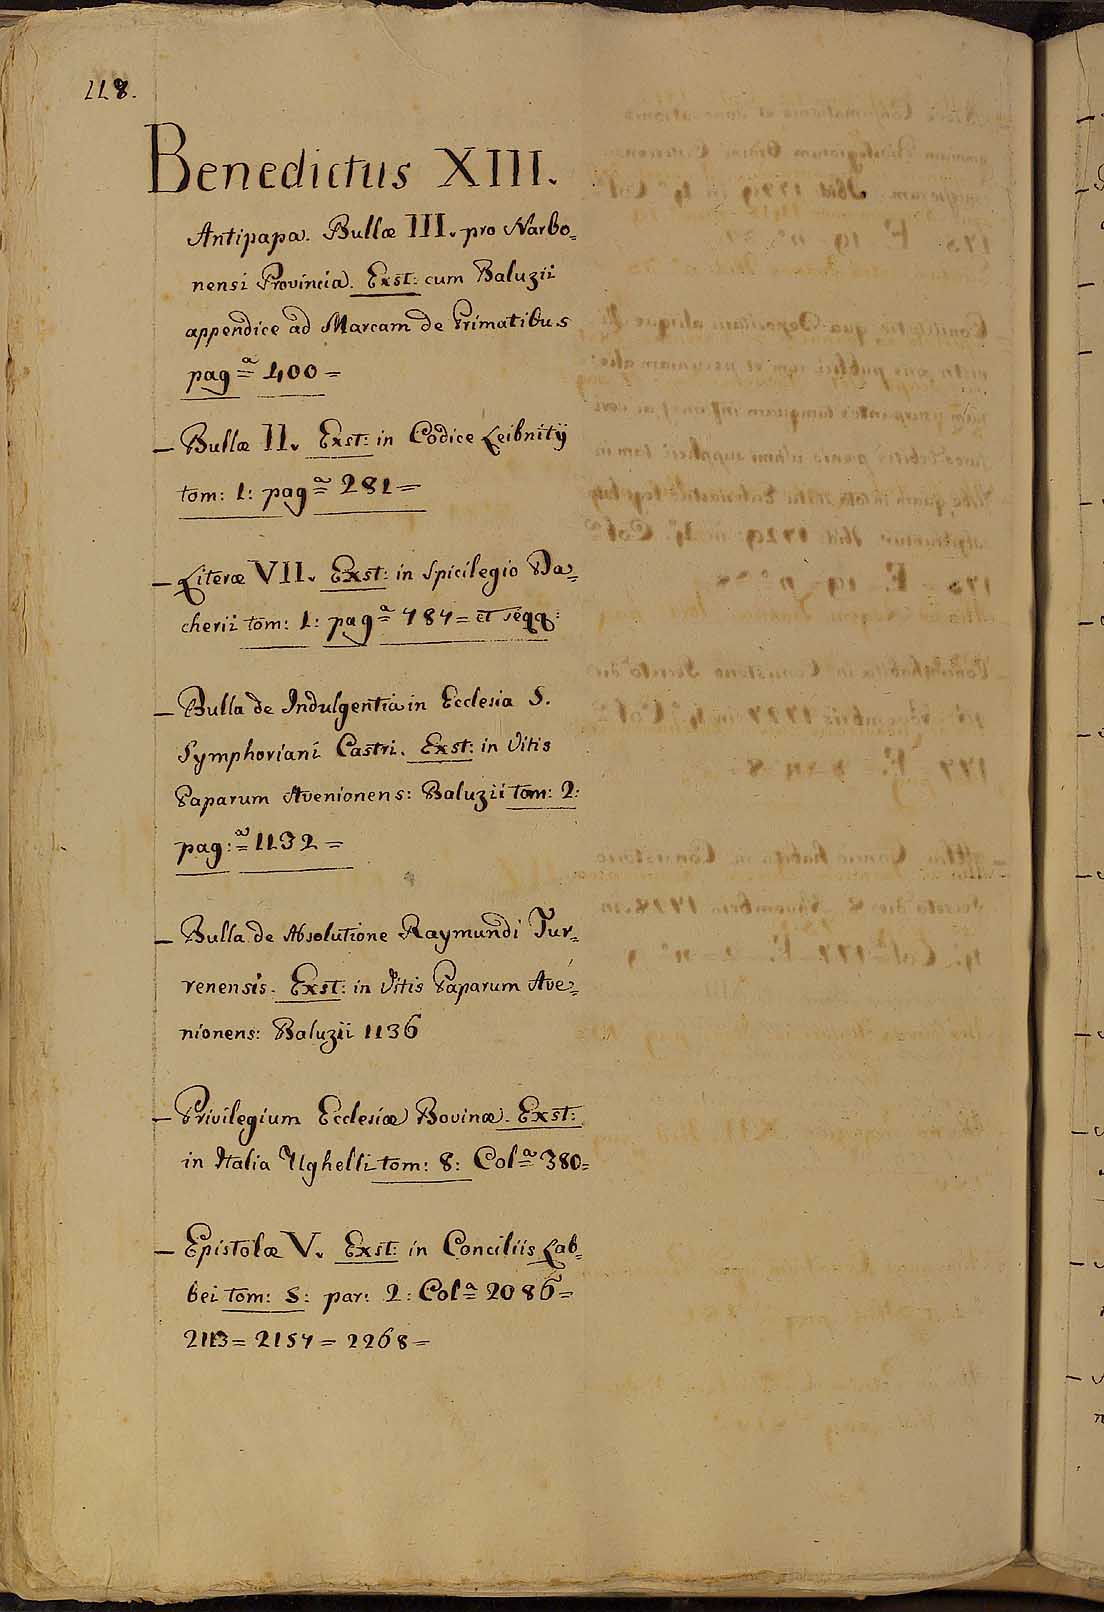 118.
Benedictus XIII.
Antipapa. Bullæ III. pro Narbo=
nensi Provincia. Exst: cum Baluzii
appendice ad Marcam de Primatibus
pagª 400=
– Bullæ II. Exst: in Codice Leibnitij
tom: 1: pagª 281=
– Literæ VII. Exst: in Spicilegio Da=
cherii tom: 1: pagª 787= et seqq:
– Bulla de Indulgentia in Ecclesia S.
Symphoriani Castri. Exst: in Vitis
Paparum Avenionens: Baluzii tom: 2:
pag:ª 1132=
– Bulla de Absolutione Raymundi Tur=
renensis. Exst: in Vitis Paparum Ave=
nionens: Baluzii 1136
– Privilegium Ecclesiæ Bovinæ. Exst:
in Italia Ughelli tom: 8: Colª 380=
– Epistolæ V. Exst: in Conciliis Lab=
bei tom: S: par: 2: Colª 2086=
2113= 2157= 2268=